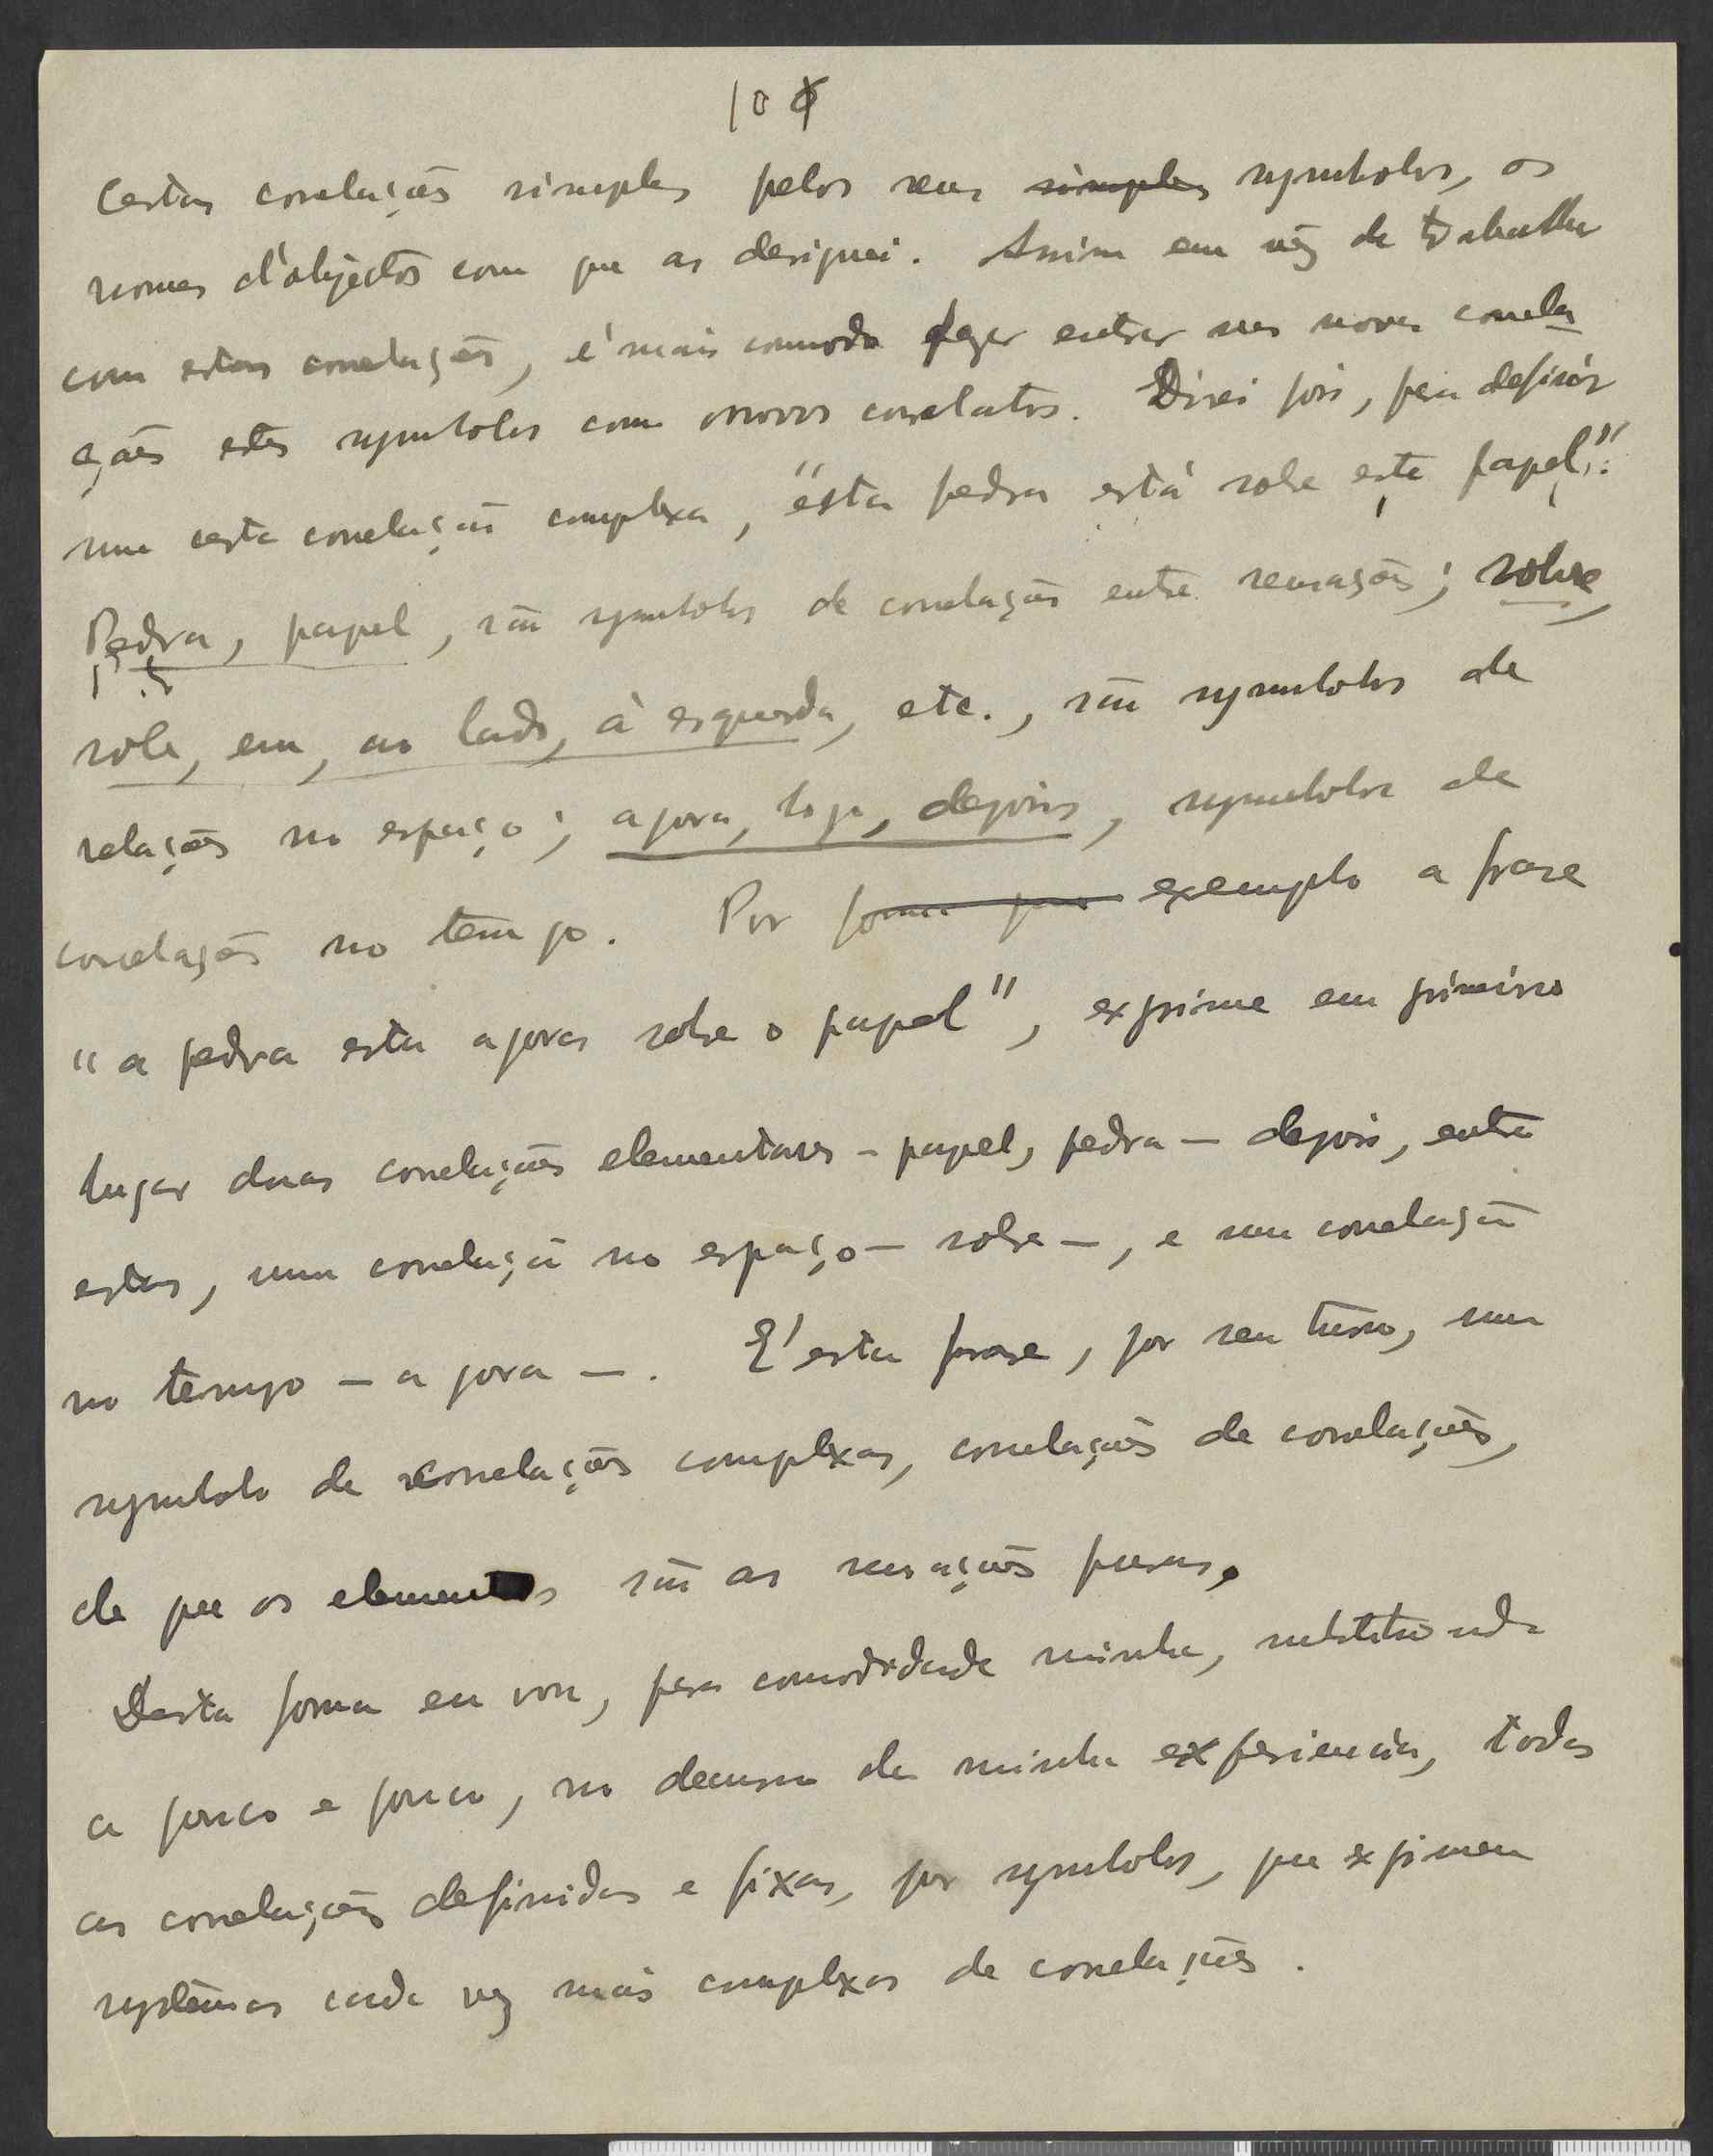 10
Certas correlações simples pelos seus simples symbolos, os
nomes d'objectos com que as designei. Assim em vêz de trabalhar
com estas correlações, é mais commodo fazer entrar nas novas correla
ções estes symbolos como novos correlatos. Direi pois, para definir
uma certa correlação complexa, "esta pedra está sobre este papel".
Pedra, papel, são symbolos de correlações entre sensações; sobre,
sob, em, ao lado, à esquerda, etc., são symbolos de
relações no espaço; agora, logo, depois, symbolos de
correlações no tempo. Por forma que exemplo a frase
"a pedra esta agora sobre o papel", exprime em primeiro
lugar duas correlações elementares – papel, pedra – depois, entre
estas, uma correlação no espaço – sobre –, e uma correlação
no tempo – agora –. E' esta frase, por seu turno, um
symbolo de correlações complexas, correlações de correlações,
de que os elementos são as sensações puras.
Desta forma eu vou, para comodidade minha, substituindo
a pouco e pouco, no decurso da minha experiencia, todas
as correlações definidas e fixas, por symbolos, que exprimem
systemas cada vez mais complexos de correlações.